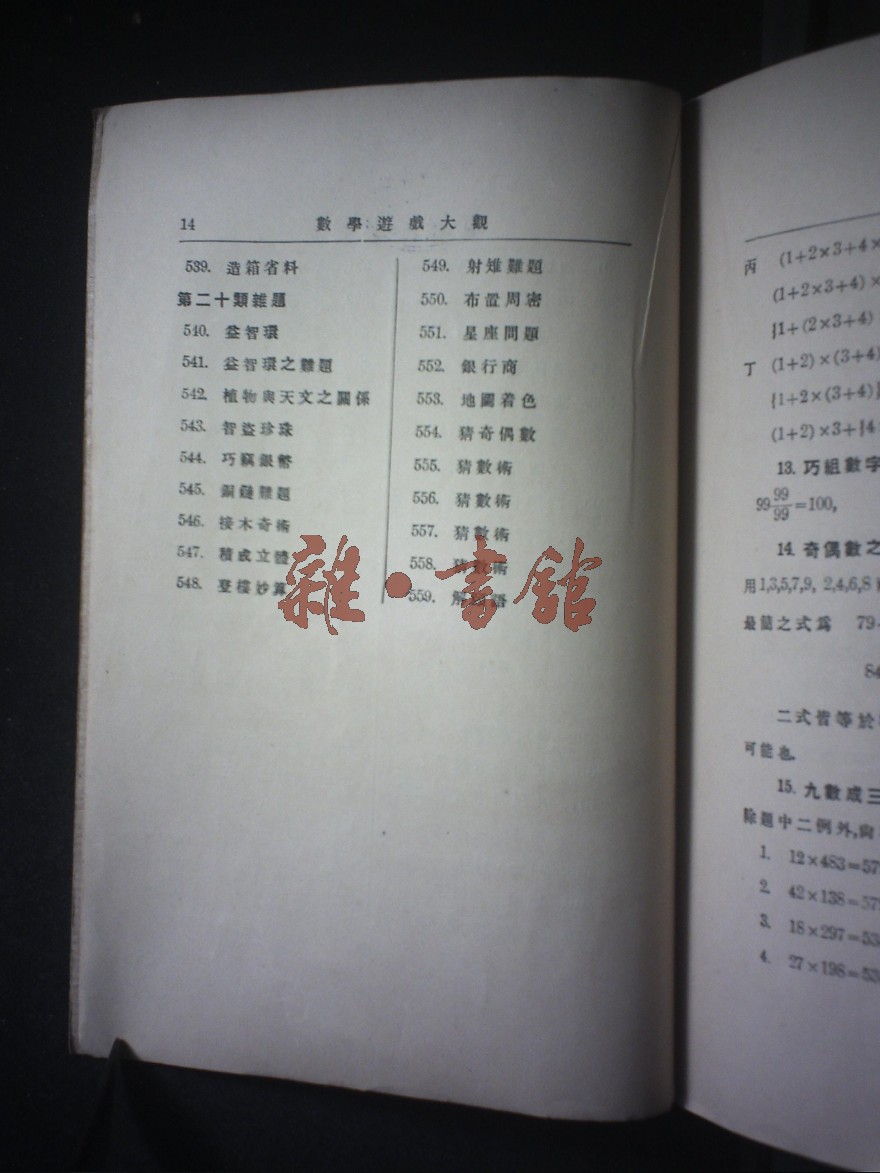 14 數學遊戲大觀
539. 造箱省料
第二十類雜題
540. 益智環
541. 益智環之難題
542. 植物與天文之關係
543. 智盜珍珠
544. 巧竊銀幣
545. 銅鏈難題
546. 接木奇術
547. 積成立體
548. 登樓妙算
549. 射雉難題
550. 布置周密
551. 星座問題
552. 銀行商
553. 地圖着色
554. 猜奇偶數
555. 猜數術
556. 猜數術
557. 猜數術
558. 猜數術
559. 解語
雜·書館
丙 (1+2×3+4×
(1+2×3+4)×
{1+(2×3+4)
丁 (1+2)×(3+4)
{1+2×(3+4)}
(1+2)×3+{4
13. 巧組數字
99 99/99=100,
14. 奇偶數之
用1,3,5,7,9, 2,4,6,8
最簡之式爲 79
84
二式皆等於
可能也
15. 九數成三
除題中二例外,尙
1. 12×483=57
2. 42×138=57
3. 18×297=53
4. 27×198=53